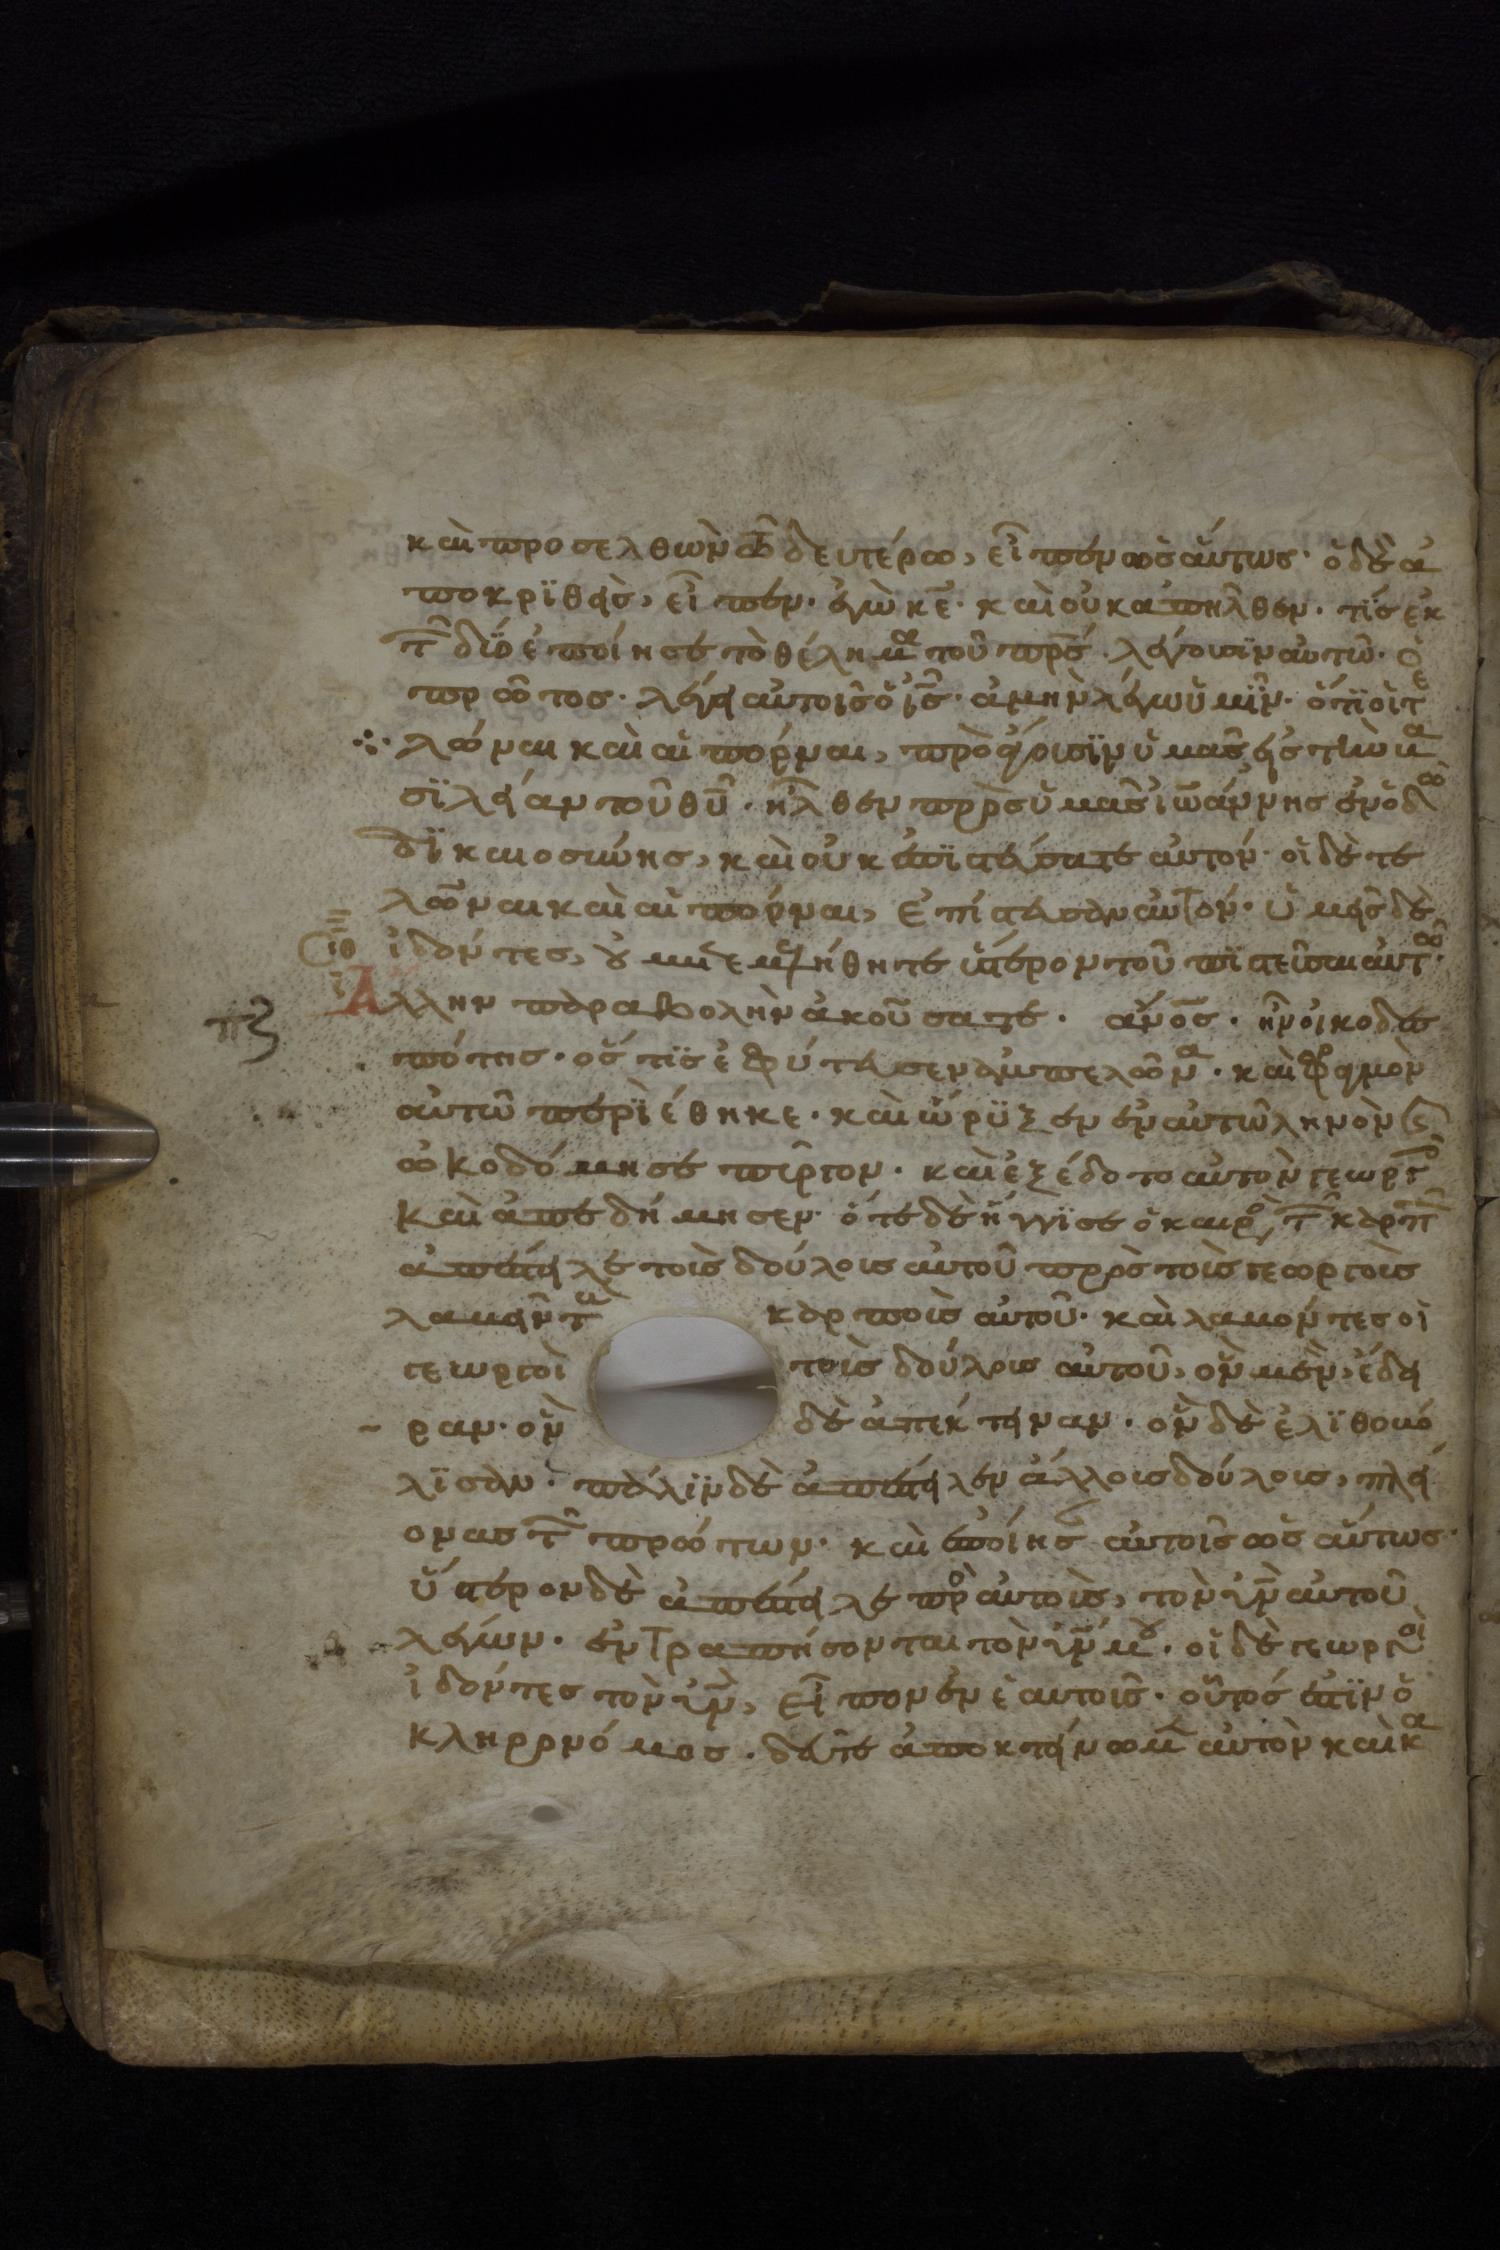 καὶ προσελθὼν τῶ δευτέρω, εἶπεν ὡσαύτως· ὁ δὲ ἀ
ποκρϊθεὶς, εἶπεν· ἐγὼ κε̅· καὶ οὐκ ἀπῆλθεν· τίς ἐκ
τ δύο ἐποίησε τὸ θέλημα τοῦ πρ̅ς· λέγουσϊν αὐτῶ· ὁ
πρῶτος· λέγει αὐτοῖς ὁ ι̅ς· ἀμὴν λέγω ὑμῖν· ὅτϊ οἱ τε
λῶναι καὶ αἱ πόρναι, προάγουσϊν ὑμᾶς εἰς τὴν βα
σϊλείαν τοῦ θυ̅· ἦλθεν πρὸς ὑμᾶς ἰωάννης ἐν ὁδῶ
δϊκαιοσύνης, καὶ οὐκ ἐπϊστεύσατε αὐτόν· οἱ δὲ τε
λῶναι καὶ αἱ πόρναι, ἐπίστευσαν αὐτόν· ὑμεῖς δὲ
σιθ ἰδόντες, οὐ μετεμελήθητε ὕστερον τοῦ πϊστεῦσαι αὐτῶ·
πζ Ἄλλην παραβολὴν ἀκούσατε· ἄνο̅ς· ἦν οἰκοδεσ
πότης· ὅς τϊς ἐφύτευσεν ἀμπελῶνα· καὶ φραγμὸν
αὐτῶ περϊέθηκε· καὶ ὤρϋξεν ἐν αὐτῶ ληνὸν ϗ
ὠκοδόμησε πύργον· καὶ ἐξέδοτο αὐτὸν γεωργο
καὶ ἀπεδήμησεν· ὅτε δὲ ἤγγϊσε ὁ καιρὸ, τ καρπ
ἀπέστειλε τοὺς δούλους αὐτοῦ πρὸς τοὺς γεωργοὺς
λαβεῖν τ καρποὺς αὐτοῦ· καὶ λαβόντες οἱ
γεωργοὶ τοὺς δούλους αὐτοῦ, ὃν μὲν, ἔδει
ραν· ὃν δὲ ἀπέκτειναν· ὃν δὲ ἐλϊθοβό
λϊσαν· πάλϊν δὲ ἀπέστειλεν ἄλλους δούλους, πλεί
ονας τ πρώτων· καὶ ἐποίησ αὐτοῖς ὡσαύτως·
ὕστερον δὲ ἀπέστειλε πρὸ αὐτοὺς, τὸν υἱν̅ αὐτοῦ
λέγων· ἐντραπήσονται τὸν υἱν̅ μου· οἱ δὲ γεωργοὶ
ἰδόντες τὸν υἱν̅, εἶπον ἐν ἑαυτοῖς· οὗτός ἐστϊν ὁ
κληρονόμος· δεῦτε ἀποκτείνωμ αὐτὸν καὶ κα